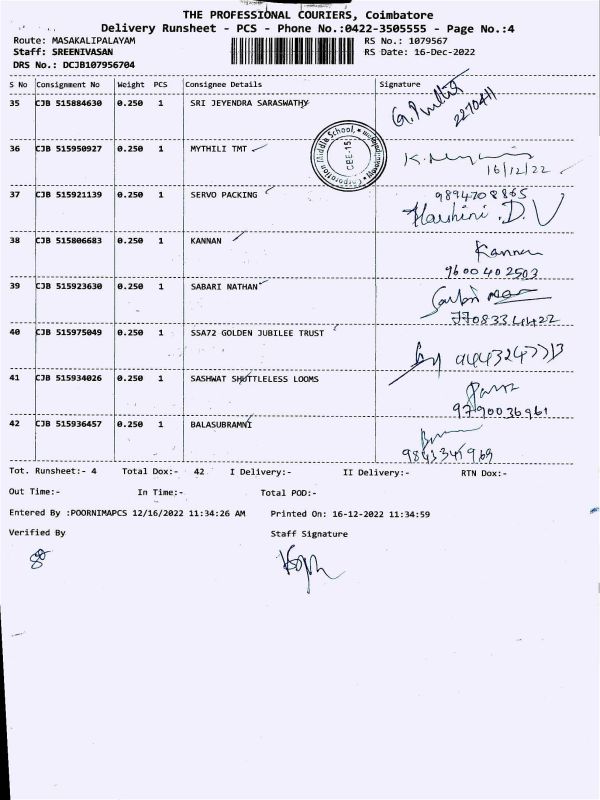 THE PROFESSIONAL COURIERS, Coimbatore
Delivery Runsheet - PCS - Phone No.:0422-3505555 - Page No.:4
Route: MASAKALIPALAYAM RS No.: 1079567
Staff: SREENIVASAN RS Date: 16-Dec-2022
DRS No.: DCJB107956704
S No Consignment No Weight PCS Consignee Details Signature
35 CJB 515884630 0.250 1 SRI JEYENDRA SARASWATHY
2270411
36 CJB 515950927 0.250 1 MYTHILI TMT
Corporation Middle School,
CBE-15
16/12/22
37 CJB 515921139 0.250 1 SERVO PACKING 9894708865
Harshini .D.V
38 CJB 515806683 0.250 1 KANNAN Kannan
9600402503
39 CJB 515923630 0.250 1 SABARI NATHAN
40 CJB 515975049 0.250 1 SSA72 GOLDEN JUBILEE TRUST
41 CJB 515934026 0.250 1 SASHWAT SHUTTLELESS LOOMS
9790036961
42 CJB 515936457 0.250 1 BALASUBRAMNI
9843341969
Tot. Runsheet:- 4 Total Dox:- 42 I Delivery:- II Delivery:- RTN Dox:-
Out Time:- In Time:- Total POD:-
Entered By :POORNIMAPCS 12/16/2022 11:34:26 AM Printed On: 16-12-2022 11:34:59
Verified By Staff Signature